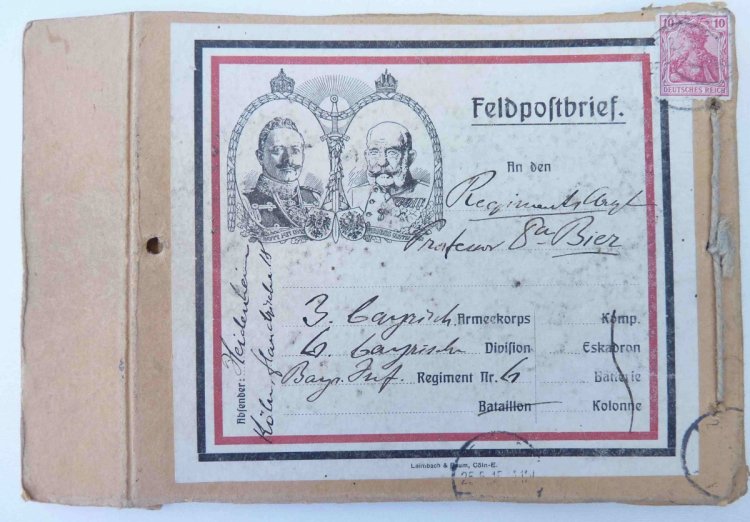 10 10
DEUTSCHES REICH
Feldpostbrief.
An den
Regimentsarzt
Professor Bier
3. bayrisch. Armeekorps Komp.
6. bayrische Division Eskadron
Bayr. Inf. Regiment Nr. 6 Batterie
Bataillon Kolonne
Absender: Heidenheim
Köln,
Leimbach & Baum, Cöln-E.